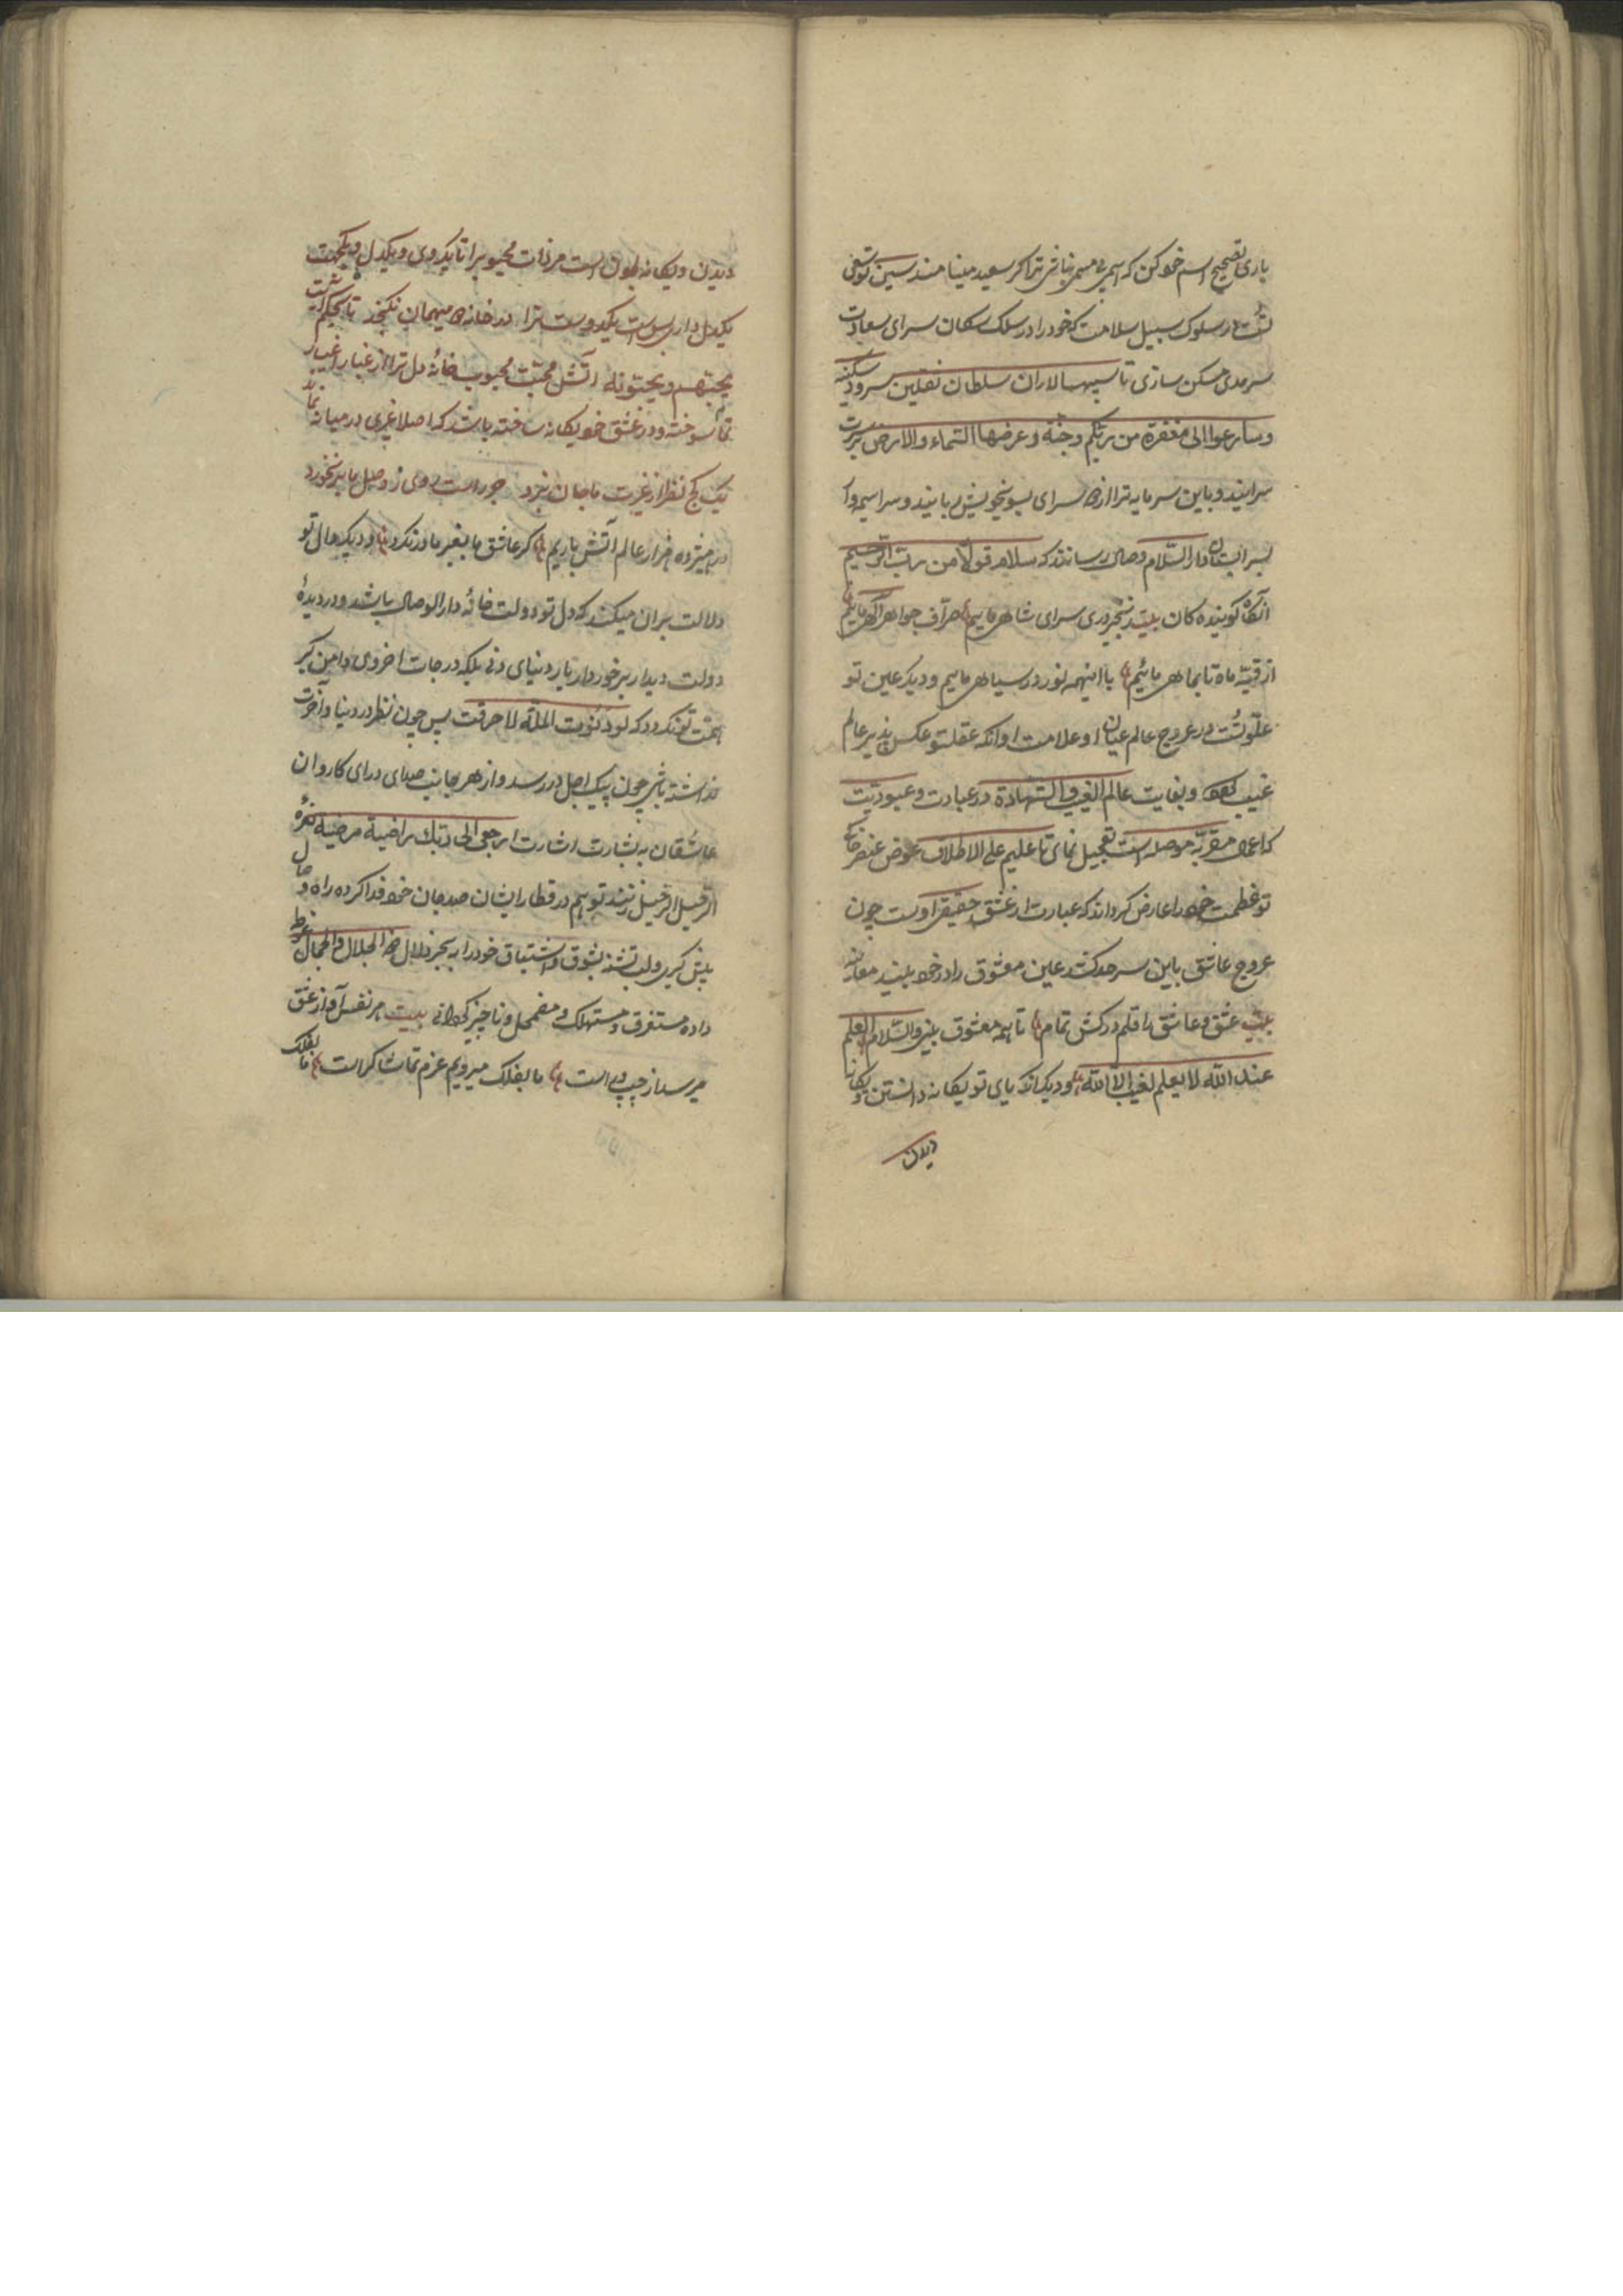 باری تصحیح اسم خود کن که اسم بی مسمی نباشی ترا که سعید مینامند سین تو سعی
تست در سلوک سبیل سلامت که خود را در سلک سکان سرای سعادت
سرمدی مسکن سازی تا سپهسالاران سلطان ثقلین سرود سکینه
وسارعوا الی مغفرة من ربکم وجنة وعرضها السماء والارض
سرایند و باین سرمایه ترا ازین سرای بسوی خویش ربایند و سراسیمه وار
بسرابستان دار السلام وصال رسانند که سلام قولا من رب الرحیم
آنگاه گوینده کان بیت سرای شاهی مائیم صراف جواهر الهی مائیم
از قبه ماه تا بماهی مائیم با اینهمه نور در سیاهی مائیم و دیگر عین تو
علو تست در عروج عالم عیان و علامت او آنکه عقل تو عکس پذیر عالم
غیب و بغایت عالم الغیب والشهادة در عبادت و عبودیت
که اعمال مقربه موصله است تعجیل نمای تا علیم علی الاطلاق عوض عنصر
تو عظمت خود را عارض گرداند که عبارت از عشق حقیقی اوست چون
عروج عاشق باین سرحد کشد عین معشوق را در خود بیند معاینه
بیت عشق و عاشق را قلم درکش تمام تا همه معشوق بینی والسلام العلم
عند الله لا یعلم الغیب الا الله و دیگر آنکه یای تو یگانه دانستن و یگانه
دیدن
دیدن و یگانه بودن است مر ذات محبوب را تا یکروی و یکدل و یکجهت
یکدل داری بس است یکدوست ترا در خانه میهمان نگنجد تا بحکم
یحبهم ویحبونه آتش محبت محبوب خانهٔ دل ترا از غبار اغیار
تمام سوخته و در عشق خود یگانه ساخته باشد که اصلا غیری در میانه نماند
یک کج نظر از غیرت ما جان نبرد جز راست روی ز وصل ما بر نخورد
در هیژده هزار عالم آتش باریم گر عاشق ما بغیر ما در نگرد و دیگر دال تو
دلالت بران میکند که دل تو دولت خانهٔ دار الوصال باشد و در دیدهٔ
دولت دیدار برخوردار یار دنیای دنی بلکه درجات اخروی دامن گیر
همت تو نگردد که لو دنوت انملة لاحرقت پس چون نظر در دنیا و آخرت
نداشته باشی چون پیک اجل در رسد و از هر جانب صدای درای کاروان
عاشقان به بشارت اشارت ارجعی الی ربک راضیة مرضیة نعرهٔ
الرحیل الرحیل زنند تو هم در قطار ایشان صد جان خود فدا کرده راه وصال
پیش گیری و لب تشنه بشوق و اشتیاق خود را به بحر زلال ذو الجلال والجمال غوطه
داده مستغرق و مستهلک و مضمحل و ناچیز گردانی بیت هر نفس آواز عشق
میرسد از چپ و راست ما بفلک میرویم عزم تماشا کراست ما بفلک